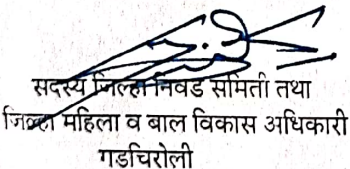 सदस्य जिल्हा निवड समिती तथा
जिल्हा महिला व बाल विकास अधिकारी
गडचिरोली